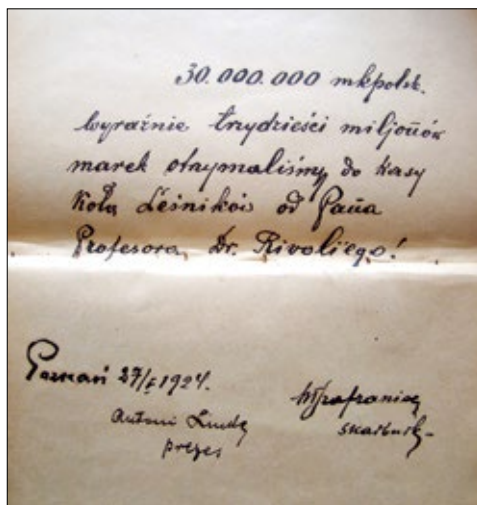 30.000.000 mkpolsk.
wyraźnie trzydzieści miljonów
marek otrymaliśmy do kasy
Koła Leśników od Pana
Profesora Dr. Rivoli'ego!
Poznań 27/I 1924.
Antoni
prezes
skarbnik